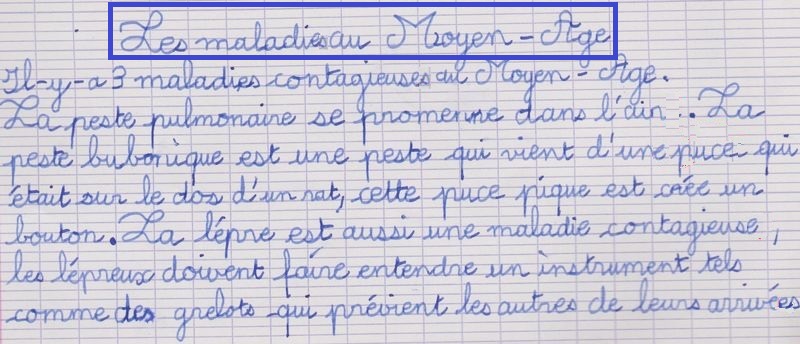 Les maladies au Moyen-Age
Il-y-a 3 maladies contagieuses au Moyen-Age.
La peste pulmonaire se promenne dans l'air. La
peste bubonique est une peste qui vient d'une puce qui
était sur le dos d'un rat, cette puce pique est crée un
bouton. La lépre est aussi une maladie contagieuse,
les lépreux doivent faire entendre un instrument tels
comme des grelots qui prévient les autres de leurs arrivées